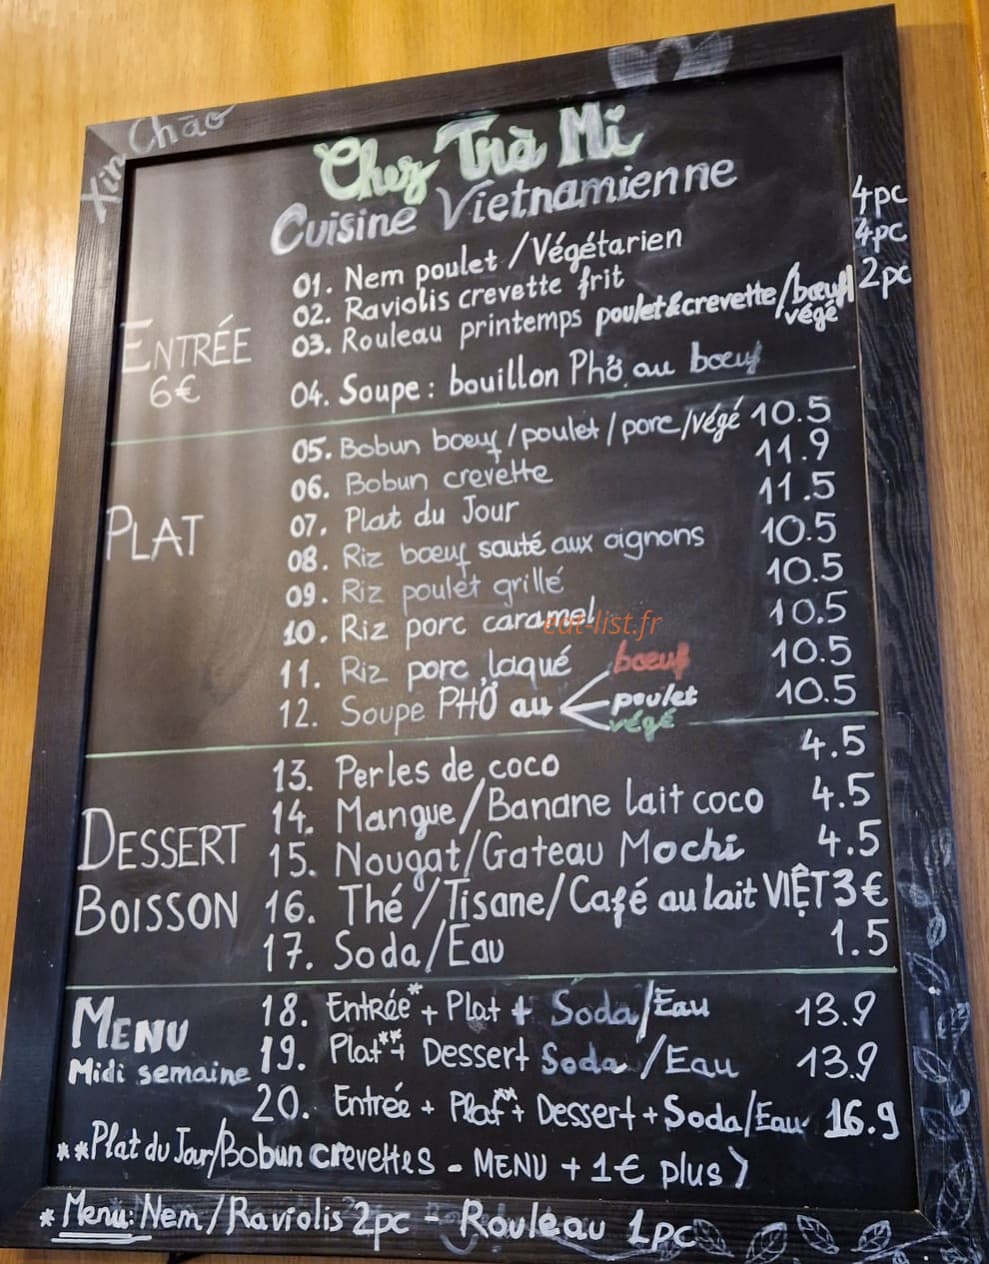 Xin Chào
Chez Trà Mi
Cuisine Vietnamienne
ENTRÉE
6€
01. Nem poulet / Végétarien 4pc
02. Raviolis crevette frit 4pc
03. Rouleau printemps poulet&crevette/bœuf/ 2pc
végé
04. Soupe : bouillon Phở au bœuf
PLAT
05. Bobun bœuf / poulet / porc / végé 10.5
06. Bobun crevette 11.9
07. Plat du Jour 11.5
08. Riz bœuf sauté aux oignons 10.5
09. Riz poulet grillé 10.5
10. Riz porc caramel 10.5
eat-list.fr
11. Riz porc laqué 10.5
12. Soupe PHỞ au bœuf 10.5
poulet
végé
DESSERT
13. Perles de coco 4.5
14. Mangue/Banane lait coco 4.5
15. Nougat/Gateau Mochi 4.5
BOISSON
16. Thé / Tisane/Café au lait VIỆT 3€
17. Soda/Eau 1.5
MENU
Midi semaine
18. Entrée* + Plat + Soda/Eau 13.9
19. Plat**+ Dessert Soda /Eau 13.9
20. Entrée + Plat**+ Dessert + Soda/Eau 16.9
**Plat du Jour/Bobun crevettes - MENU + 1€ plus)
* Menu: Nem/Raviolis 2pc - Rouleau 1pc